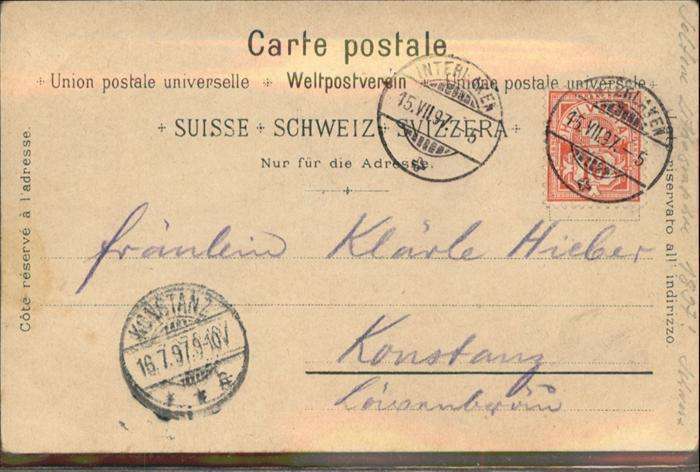 Carte postale.
Union postale universelle Weltpostverein Unione postale universale
SUISSE SCHWEIZ SVIZZERA
Nur für die Adresse.
Côte réservé à l'adresse.
riservato all' indirizzo
INTERLAKEN
15.VII.97.-5
INTERLAKEN
15.VII.97.-5
10
fräulein Klärle Hieber
Konstanz
Löwenbräu
KONSTANZ
16.7.97.9-10V